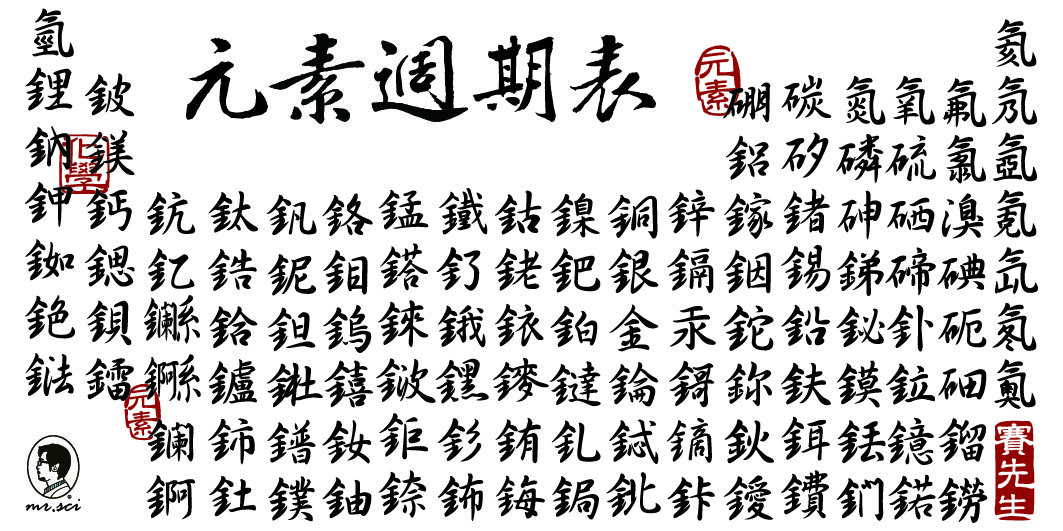 元素週期表
元素
氫 氦
鋰 鈹 硼 碳 氮 氧 氟 氖
鈉 鎂 鋁 矽 磷 硫 氯 氬
化學
鉀 鈣 鈧 鈦 釩 鉻 錳 鐵 鈷 鎳 銅 鋅 鎵 鍺 砷 硒 溴 氪
銣 鍶 釔 鋯 鈮 鉬 鎝 釕 銠 鈀 銀 鎘 銦 錫 銻 碲 碘 氙
銫 鋇 鑭系 鉿 鉭 鎢 錸 鋨 銥 鉑 金 汞 鉈 鉛 鉍 釙 砈 氡
鍅 鐳 錒系 鑪 𨧀 𨭎 𨨏 𨭆 䥑 鐽 錀 鎶 鉨 鈇 鏌 鉝 鿬 鿫
元素
鑭 鈰 鐠 釹 鉕 釤 銪 釓 鋱 鏑 鈥 鉺 銩 鐿 鎦
錒 釷 鏷 鈾 錼 鈽 鋂 鋦 鉳 鉲 鑀 鐨 鍆 鍩 鐒
賽先生
mr.sci